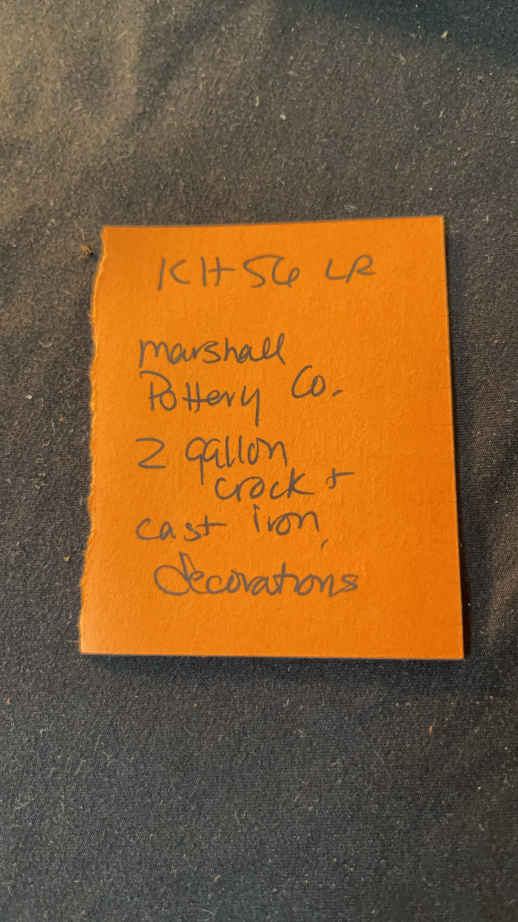 KH56 LR
Marshall
Pottery Co.
2 gallon
crock +
cast iron
decorations